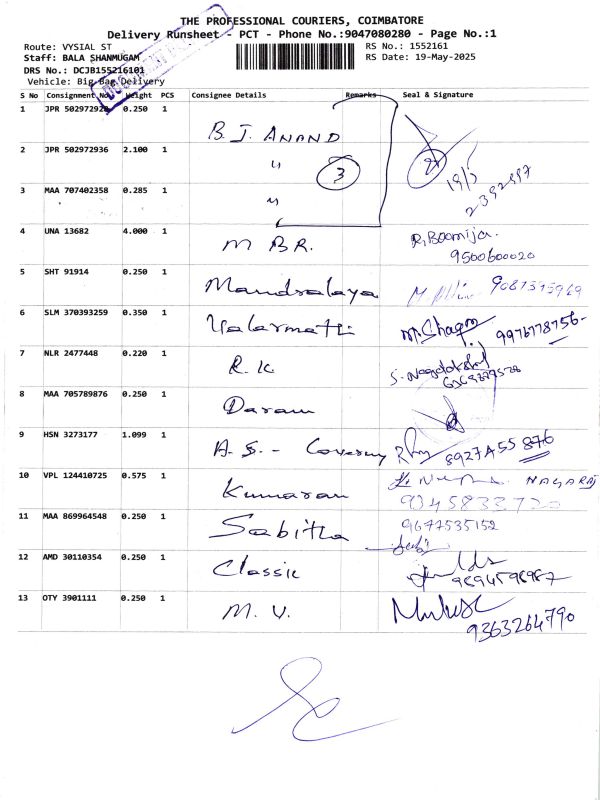 THE PROFESSIONAL COURIERS, COIMBATORE
Delivery Runsheet - PCT - Phone No.:9047080280 - Page No.:1
Route: VYSIAL ST
RS No.: 1552161
Staff: BALA SHANMUGAM
RS Date: 19-May-2025
DRS No.: DCJB155216101
Vehicle: Big Bag Delivery
S No Consignment No. Weight PCS Consignee Details Remarks Seal & Signature
1 JPR 502972920 0.250 1 B.J. ANAND
2 JPR 502972936 2.100 1 " 3
3 MAA 707402358 0.285 1 " 19/5 2392997
4 UNA 13682 4.000 1 M B R. R. Boomija.
9500600020
5 SHT 91914 0.250 1 Mandralaya 9087375969
6 SLM 370393259 0.350 1 Valarmathi 9976778756
7 NLR 2477448 0.220 1 R. K
8 MAA 705789876 0.250 1
9 HSN 3273177 1.099 1 A. S. - 8927455876
10 VPL 124410725 0.575 1 Kumaran NAGARAJ
9045833720
11 MAA 869964548 0.250 1 Sabitha 9677535152
12 AMD 30110354 0.250 1 Classic
9894598987
13 OTY 3901111 0.250 1 M. V.
9363264790